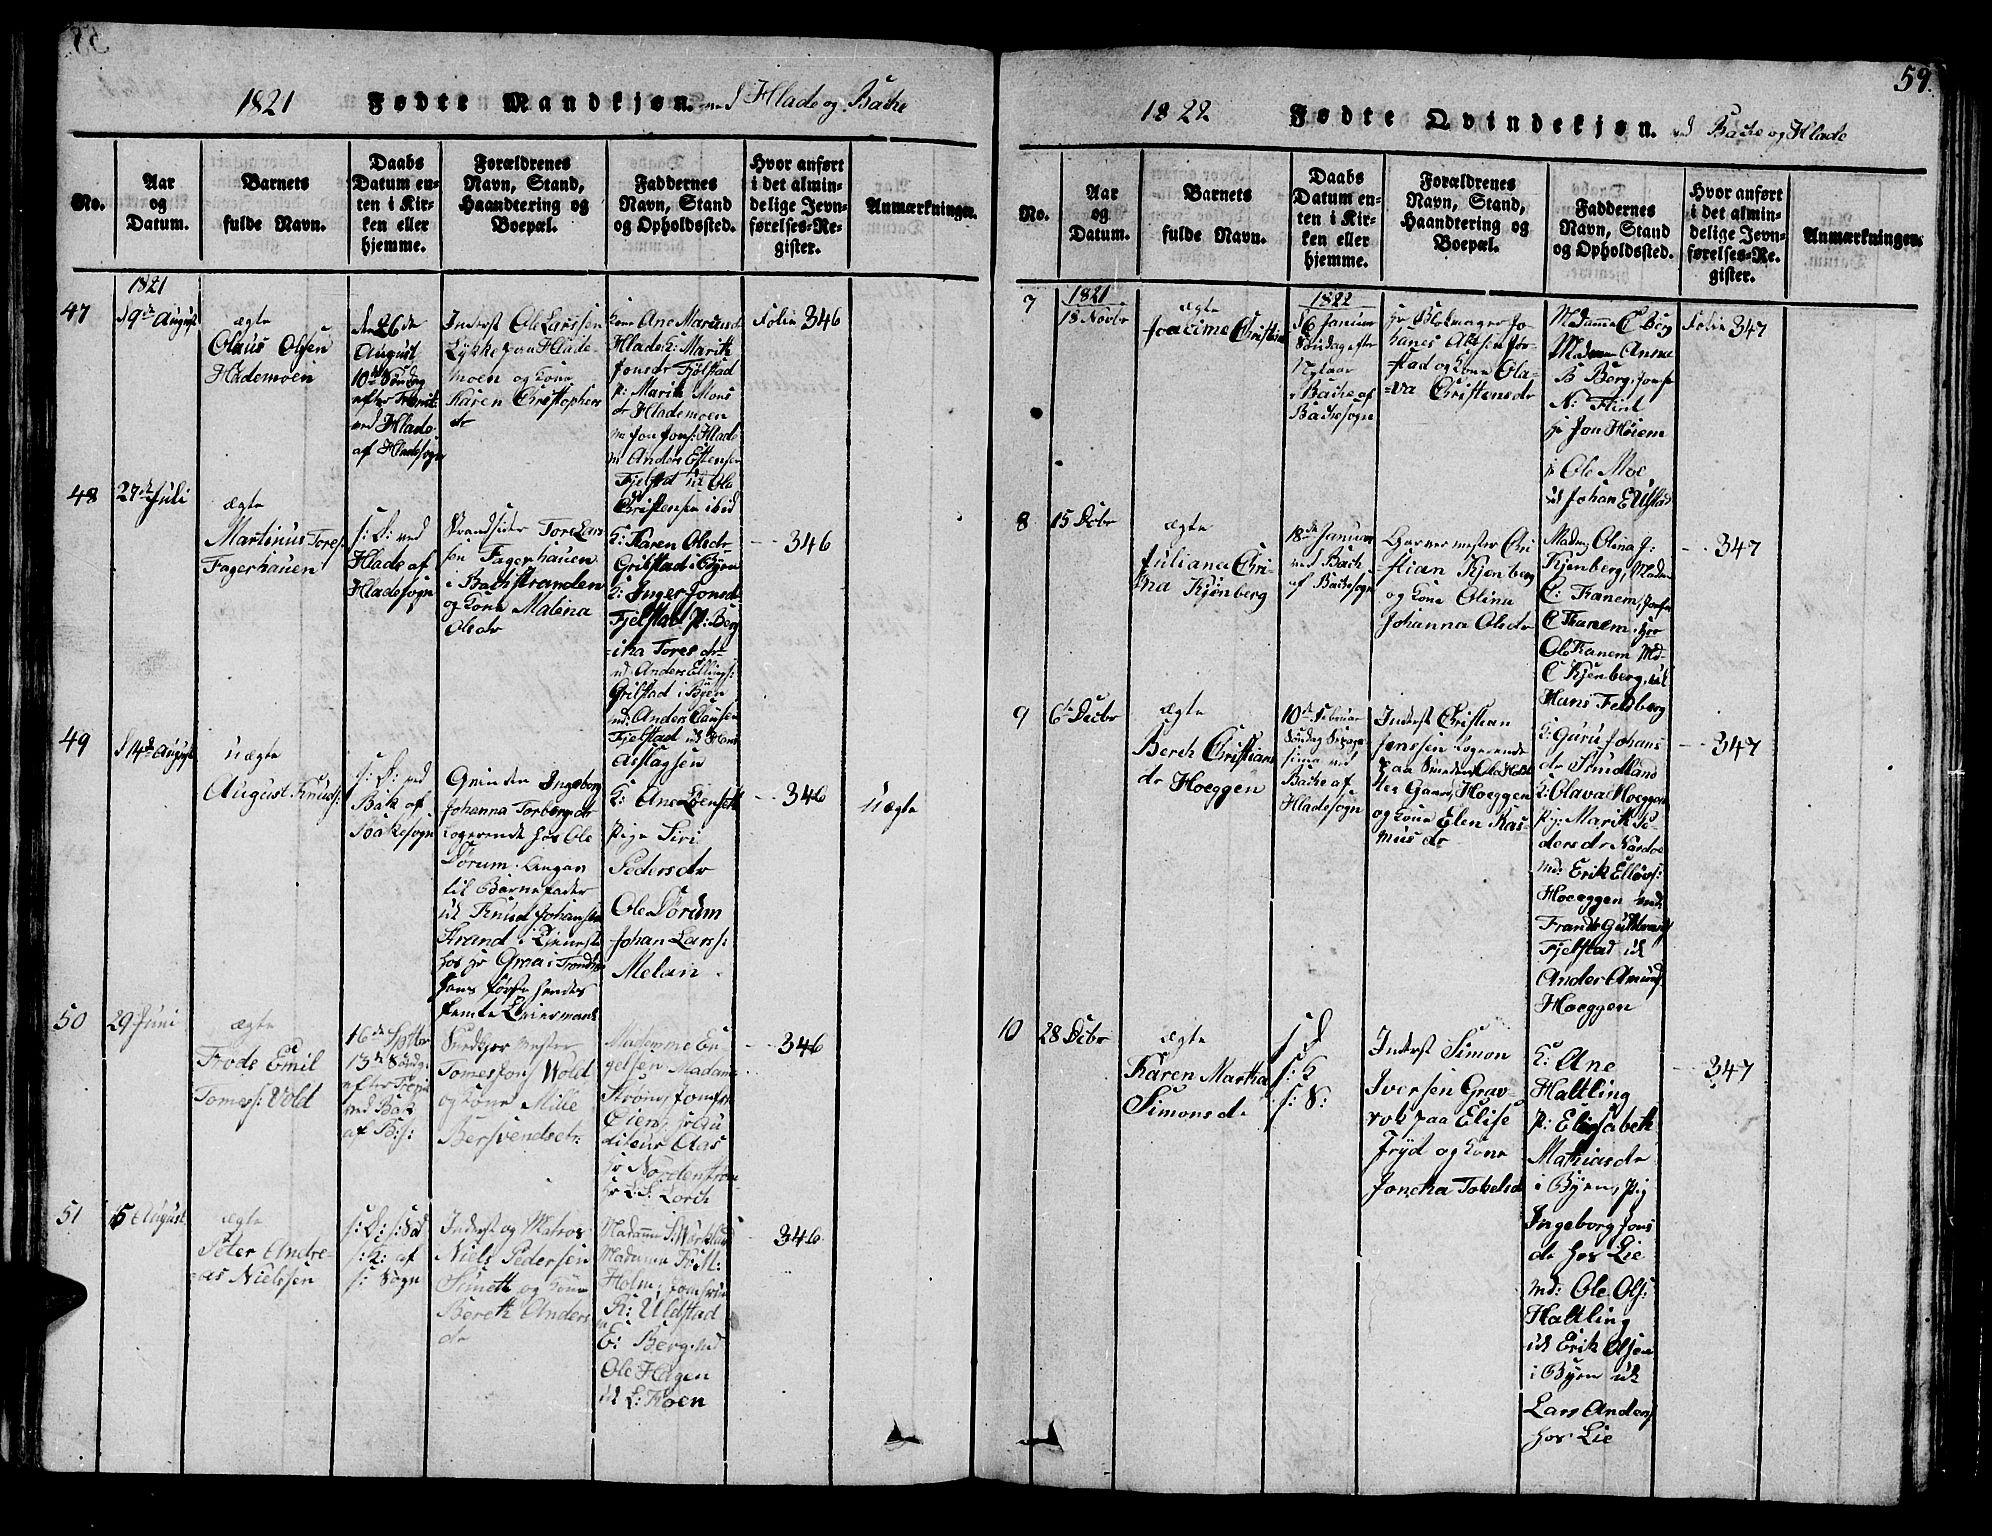 1821 Fødte Mandkjøn. ved Hlade og Bache
No.
Aar og Datum.
Barnets fulde Navn.
Daabs Datum enten i Kirken eller hjemme.
Forældrenes Navn, Stand, Haandtering og Boepæl.
Faddernes Navn, Stand og Opholdssted.
Hvor anført i det almindelige Jevnførelses-Register.
Anmærkninger.
1821
47
d 9de August
ægte
Olaus Olsen
Hlademoen
den 26de
August
10de Søndag
efter Trinit:
ved Hlade
af Hladesogn
Inderst Ole Larssen
Lykke paa Hlade-
moen og Kone
Karen Christophers
dr
Kone Ane Marcusdr
Hlade k: Marith
Jonsdr Fjølstad
p: Marith Mons
dr Hlademoen
m Jon Jons: Hlade
m Anders Estensen
Fjelstad uk Ole
Christensen ibid
Folio 346
48
27de Juli
ægte
Martinus Tores:
Fagerhauen
s: D: ved
Hlade af
Hladesogn
Strandsider Tore Lars
sen Fagerhauen
i Bachstranden
og Kone Malena
Olsdr
K: Karen Olsdr
Grilstad i Byen
K: Inger Jonsdr
Fjelstad P: Berg
ina Tores dr
m Anders Ellings:
Grilstad i Byen
m: Anders Clausen
Fjelstad uk Hans
Aslagsen
346
49
d 14de August
uægte
August Knuds:
s: D: ved
Bak af
Bakesogn
Qvinden Ingeborg
Johanna Torbergsdr
Logerende hos Ole
Dørum. Angav
til Barnefader
uk Knud Johansen
Strand i Tjeneste
hos hr Graa i Trondh
jems første hendes
femte Leiermaal
K: Ane Loenseth
Pige Siri
Pedersdr
Ole Dørum
Johan Lars:
Melan.
346
uægte
50
29 Juni
ægte
Frode Emil
Tomes: Vold
16de Septbr
13de Søndag
efter Trinit
ved Bak
af B: s:
Tomesson Wold
og Kone Mille
Bersvendsdr:
Madamme En-
gelsen Madam
Strøm, Jomfru
Øien, hr Au-
diteur Aas
hr Nordenstrøm
hr L: S: Lorck
346
51
5 August
ægte
Peter Andre-
as Nielssen
s: D: s: Sd
s: K: af
s: Sogn
Inderst og Matros
Niels Pedersen
Smett og Kone
Bereth Anders
dr
Madamme
Madamme
Holm, Jomfrue
R: Uldstad
E: Berg. m
Ole Hagen
uk L: Koen
346
59.
1822 Fødte Qvindekjøn. ved Bache og Hlade
No.
Aar og Datum.
Barnets fulde Navn.
Daabs Datum enten i Kirken eller hjemme.
Forældrenes Navn, Stand, Haandtering og Boepæl.
Faddernes Navn, Stand og Opholdssted.
Hvor anført i det almindelige Jevnførelses-Register.
Anmærkninger.
7
1821
18 Novbr
ægte
Joacime Christine
1822
d 6 Januar
Søndag efter
Nytaar
i Bache af
Bachesogn
hr Blokmager Jo-
hanes Olsen Jør-
stad og Kone Ola-
va Christensdr
Madamme C Berg
Madame Anna
B Berg, Jomfr
N: Flint
hr Jon Høiem
hr Ole Moe
uk Johan E Ulstad
Folio 347
8
15 Decbr
ægte
Juliana Chri-
stina Kjønberg
18de Januar
ved Bach
af Bachesogn
Garvermester Chri-
stian Kjenberg
og Kone Olina
Johanna Olsdr
Madam Olina J:
Kjenberg, Madam
C: Tranem, Jomfr
C Tranem, Hr
Ole Tranem Md-
C Kjenberg, uk
Hans Feldberg
347
9
6te Decbr
ægte
Bereth Christians
dr Hoeggen
10de Februar
Søndag Sexage-
sima ved
Bache af
Hladesogn
Inderst Christian
Jenssen Logerende
paa Smeden Ole
tes Gaard, Hoeggen
og Kone Elen Ras-
musdr
K: Guru Johans
dr Smedland
K: Olava Hoeggen
Pig: Marith Pe-
dersdr Nardoe
md: Erik Ellevs:
Hoeggen md:
Frands Guldbrands
Fjelstad uk
Ander Amunds
Hoeggen
347
10
28 Decbr
ægte
Karen Martha
Simonsd.
s: D
s: K
s: S:
Inderst Simon
Iversen Grav-
rok paa Elise
Fryd og Kone
Joneka Tobelsdr
K: Ane
Haltling
P: Elisabeth
Mathiasdr
i Byen, Pig
Ingeborg Jons
dr hos Lie
md: Ole Ols:
Haltling
uk Erik Olsen
i Byen uk
Lars Anders:
hos Lie
347